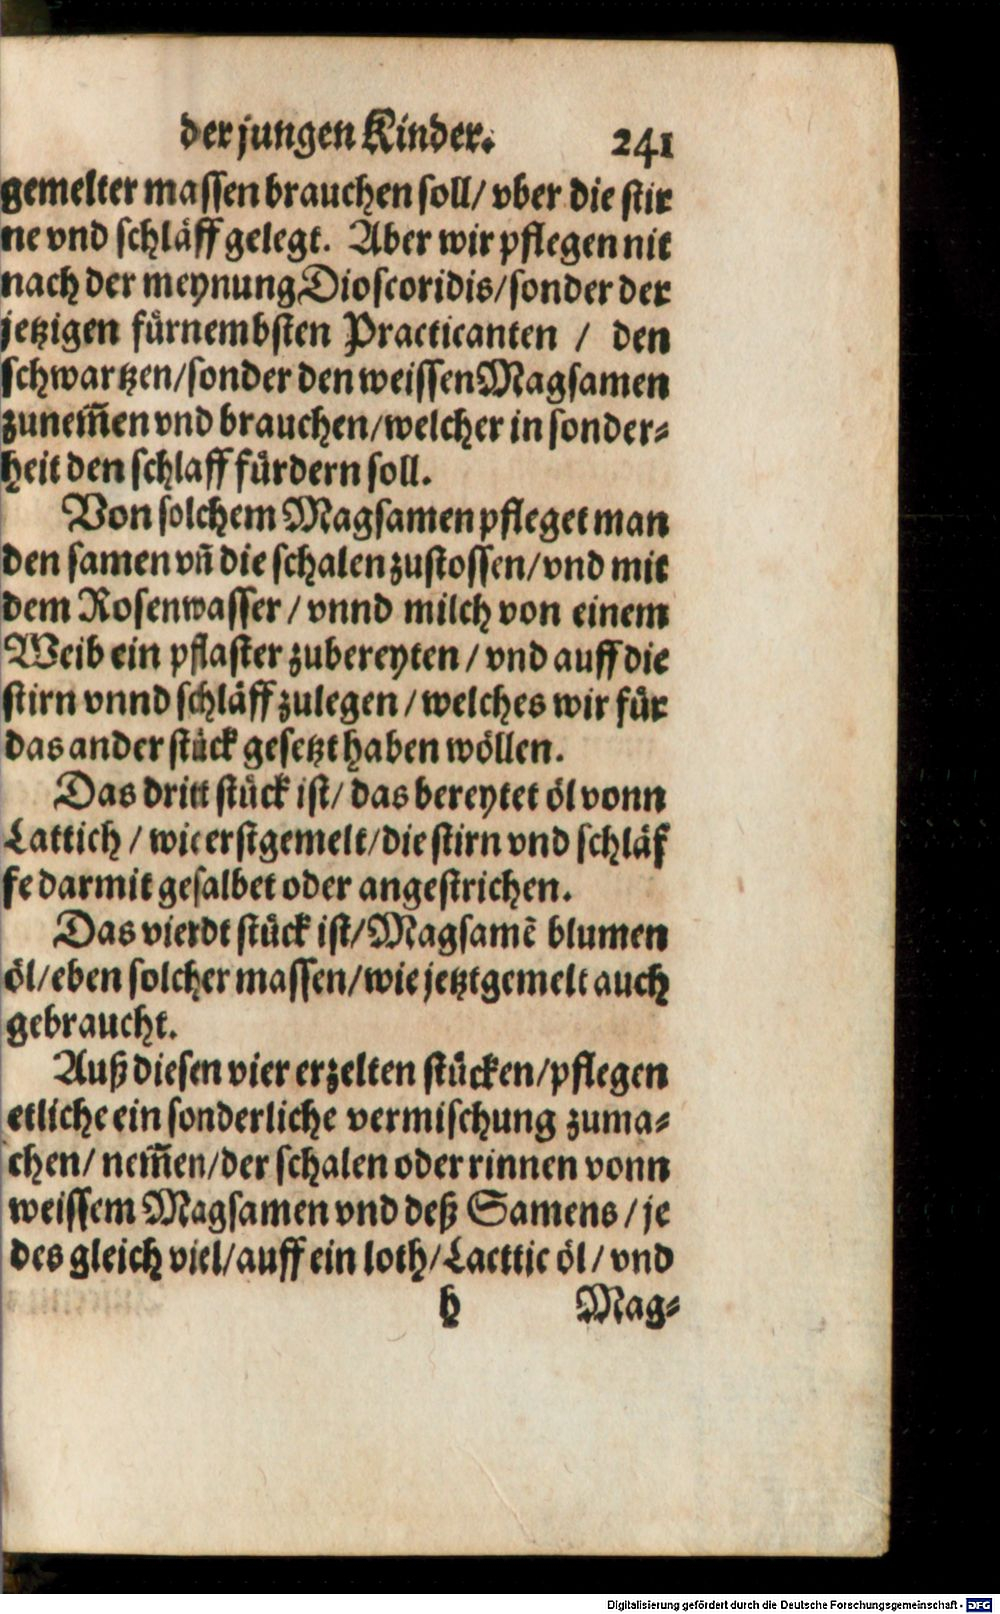 der jungen Kinder. 241
gemelter massen brauchen soll/ vber die stir
ne vnd schläff gelegt. Aber wir pflegen nit
nach der meynung Dioscoridis/ sonder der
jetzigen fürnembsten Practicanten / den
schwartzen/ sonder den weissen Magsamen
zunem̃en vnd brauchen/ welcher in sonder⸗
heit den schlaff fürdern soll.
Von solchem Magsamen pfleget man
den samen vñ die schalen zustossen/ vnd mit
dem Rosenwasser / vnnd milch von einem
Weib ein pflaster zubereyten / vnd auff die
stirn vnnd schläff zulegen / welches wir für
das ander stück gesetzt haben wöllen.
Das dritt stück ist/ das bereytet öl vonn
Lattich / wie erstgemelt/ die stirn vnd schläf
fe darmit gesalbet oder angestrichen.
Das vierdt stück ist/ Magsamẽ blumen
öl/ eben solcher massen/ wie jetztgemelt auch
gebraucht.
Auß diesen vier erzelten stücken/ pflegen
etliche ein sonderliche vermischung zuma⸗
chen/ nem̃en/ der schalen oder rinnen vonn
weissem Magsamen vnd deß Samens / je
des gleich viel/ auff ein loth/ Lacttic öl/ vnd
h Mag⸗
Digitalisierung gefördert durch die Deutsche Forschungsgemeinschaft - DFG